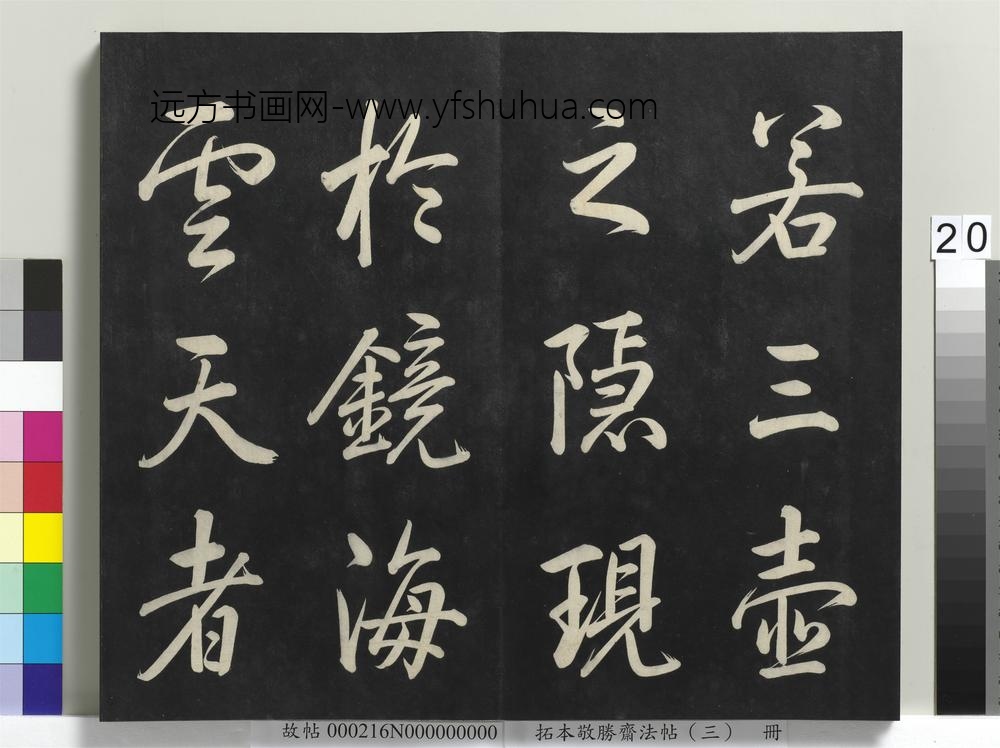 若三壺
之隱現
於鏡海
雲天者
远方书画网-www.yfshuhua.com
20
故帖 000216N000000000
拓本敬勝齋法帖（三） 冊